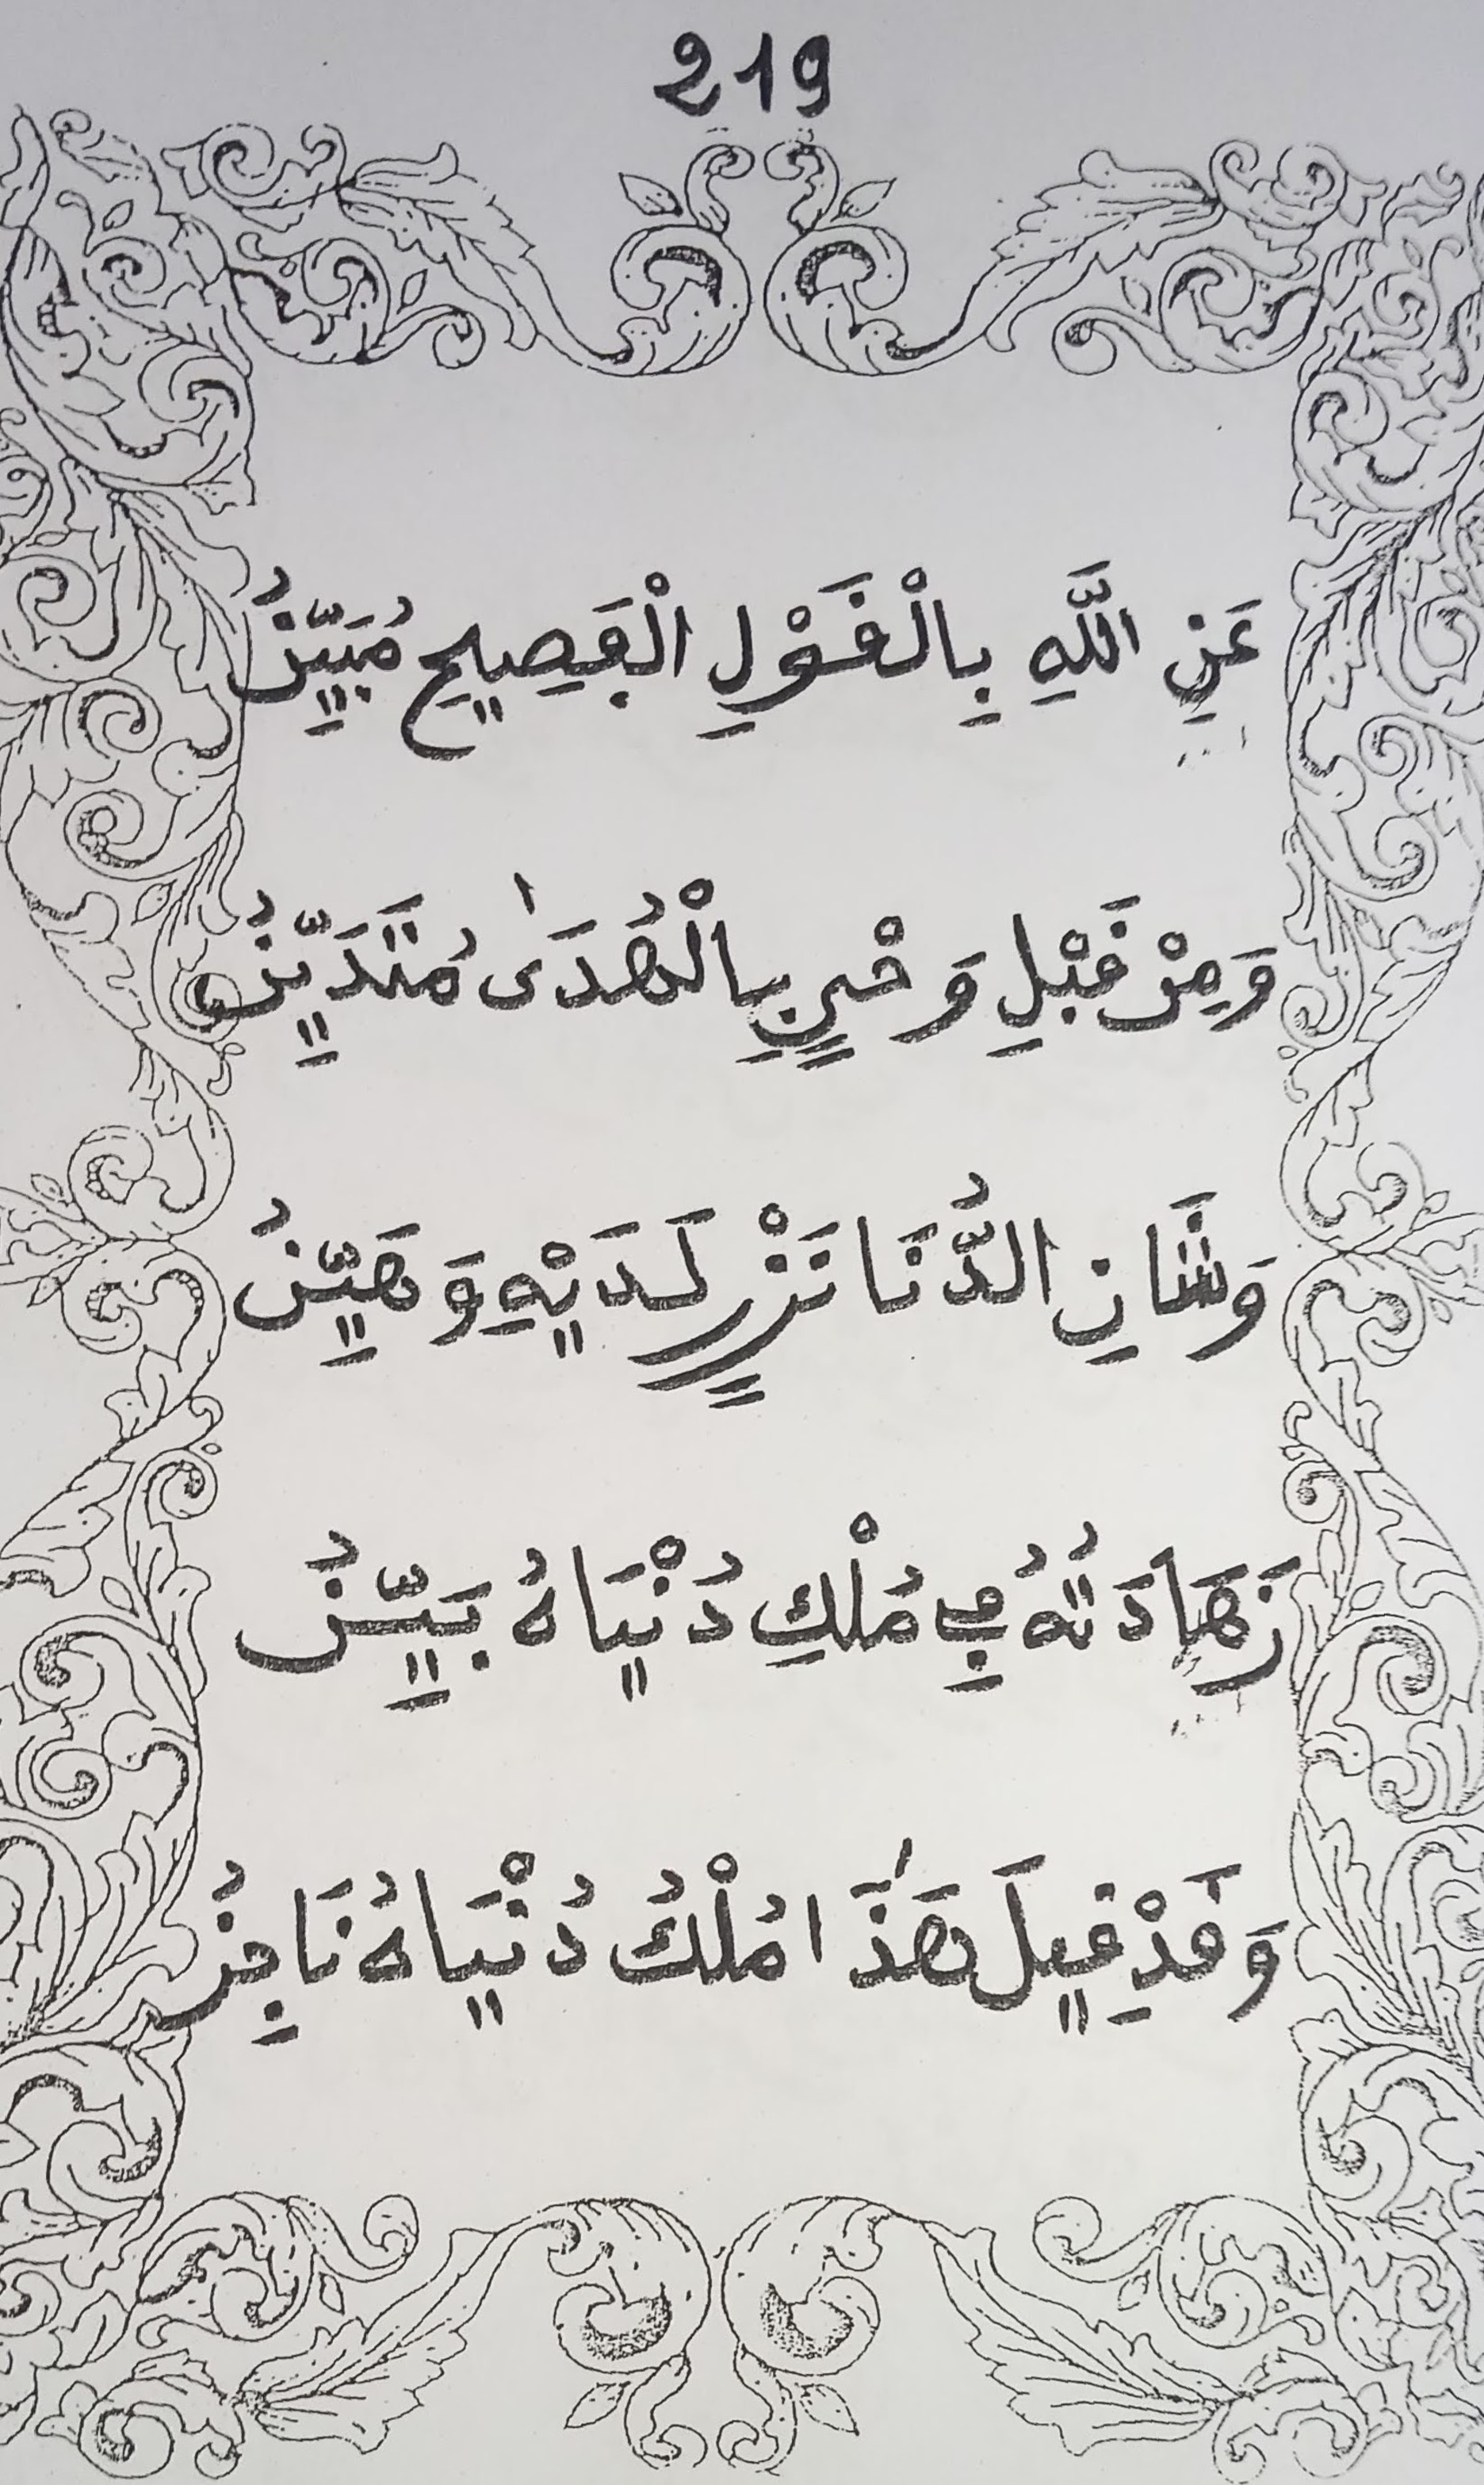 219
عَنِ اللَّهِ بِالْقَوْلِ الْفَصِيحِ مُبَيِّنُ
وَمِنْ قَبْلِ وَحْيٍ بِالْهُدَىٰ مُتَدَيِّنُ
وَشَانِ الدُّنَا نَزْرٍ لَدَيْهِ وَهَيِّنُ
زَهَادَتُهُ فِي مُلْكِ دُنْيَاهُ بَيِّنُ
وَقَدْ قِيلَ هَٰذَا مُلْكُ دُنْيَاهُ نَافِزُ